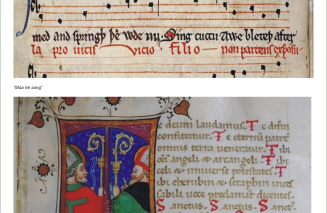 med and springþ þe wde nu. Sing cuccu Awe bleteþ after
ta pro uitis vicio filio non parcens exposu
e deum laudamus. Te dnm
confitemur. Te eternu patre
omnis terra veneratur. Tibi
oes angeli ⁊ archangeli. Tibi
celi ⁊ universe potestates. T
ibi cherubin ⁊ seraphin inces
sabili voce proclamat dicentes.
Sanctus. Sanctus. Sanc